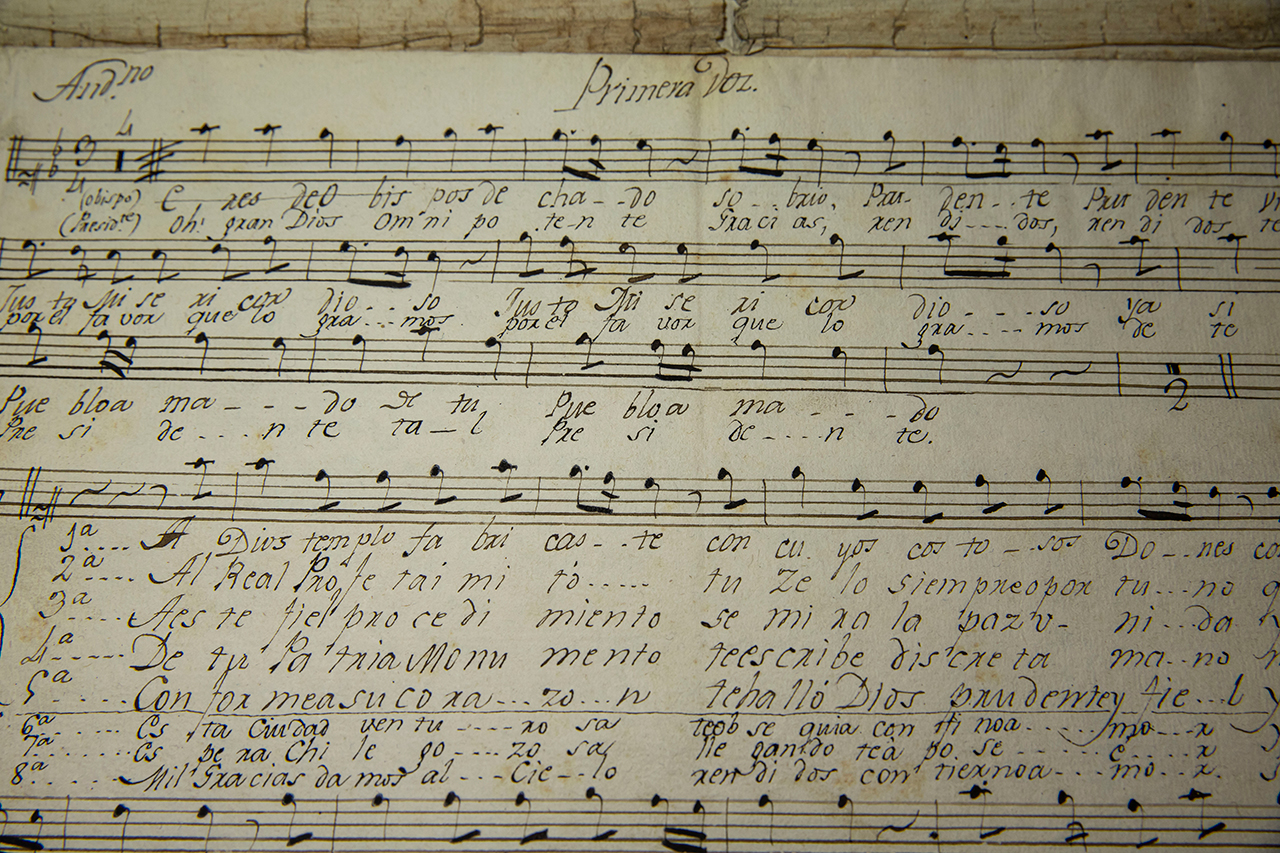 And.no Primera Voz.
4
3 4
(obispo) E res deO bis pos de cha--do so..brio, Pru- den..te Pru den te
(Presid.te) Oh! gran Dios Om ni po te-n te Graci as, ren di....dos, ren di dos te
Jus to Mi se ri cor dio...so Jus to Mi se ri cor dio....so ya si
por el fa vor que lo gra...mos por el fa vor que lo gra....mos de te
Pue bloa ma----do de tu Pue bloa ma----do
Pre si de....n te ta-l Pre si de....n te.
2
1ª.... Al Dios templo fa bri cas--te con cu yos cos to-sos Do--nes co
2ª.... Al Real Profe tai mi tó..... tu Ze lo siempreopor tu...no
3ª.... Aes te fiel pro ce di miento se mi ra la paz v- ni...da
4ª..... De tu Pa tria Monu mento teescribe discre ta ma..no
5ª.... Con for measu co ra...zo..n tehalló Dios prudentey fie...l
6ª...... Es ta Ciudad ven tu....ro sa teob se quia con fi noa.....mo..r
7ª...... Es pe ra Chi le go....zo sa lle gan do tea po se....e...r
8ª...... Mil Gracias da mos al...Cie--lo ren di dos con tiernoa...mo..r.